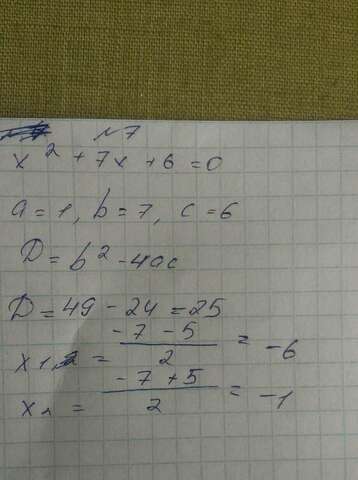 №7
x² + 7x + 6 = 0
a = 1, b = 7, c = 6
D = b² - 4ac
D = 49 - 24 = 25
x₁ = (-7 - 5)/2 = -6
x₂ = (-7 + 5)/2 = -1